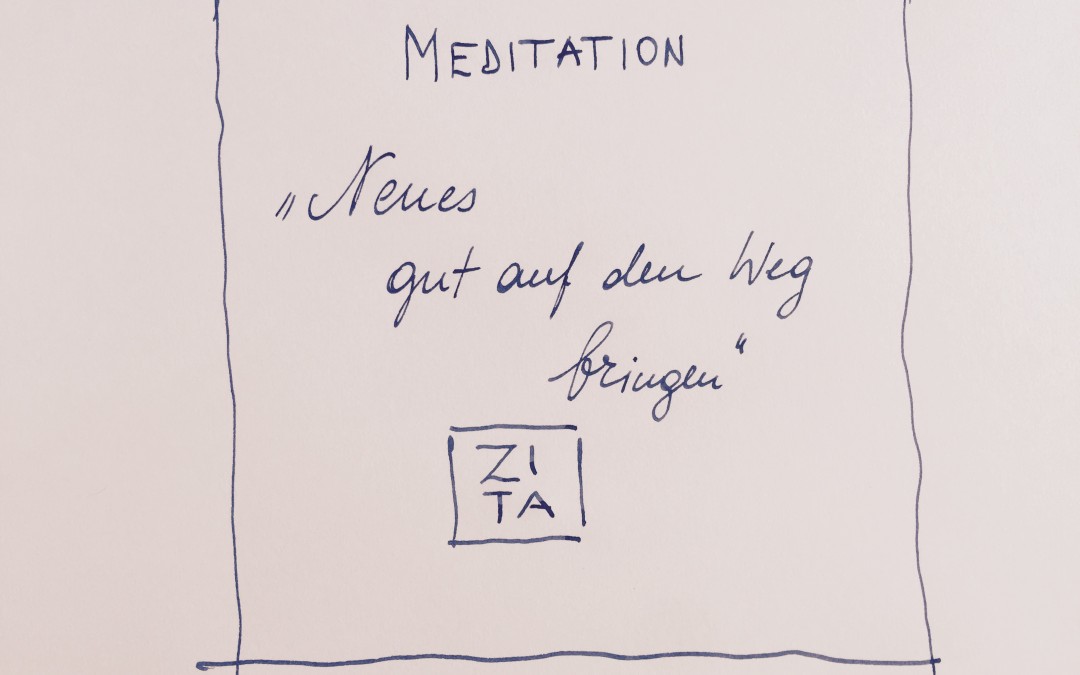 MEDITATION
„Neues
gut auf den Weg
bringen“
ZI
TA